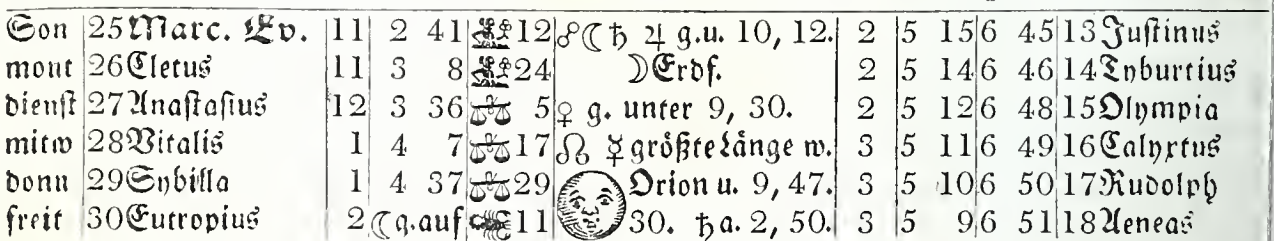 Son 25 Marc. Ev. 11 2 41 12 ☍☾♄ ♃ g.u. 10, 12. 2 5 15 6 45 13 Juſtinus
mont 26 Cletus 11 3 8 24 ☽Erdf. 2 5 14 6 46 14 Tyburtius
dienſt 27 Anaſtaſius 12 3 36 ♎ 5 ♀ g. unter 9, 30. 2 5 12 6 48 15 Olympia
mitw 28 Vitalis 1 4 7 ♎ 17 ☊ ☿ größte Länge w. 3 5 11 6 49 16 Calyxtus
donn 29 Sybilla 1 4 37 ♎ 29 Orion u. 9, 47. 3 5 10 6 50 17 Rudolph
freit 30 Eutropius 2 ☾g.auf ♏ 11 30. ♄ a. 2, 50. 3 5 9 6 51 18 Aeneas